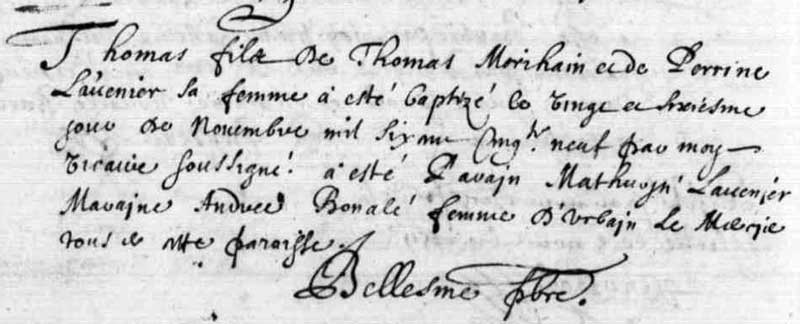 Thomas filz de Thomas Morihain et de Perrine
Lavenier sa femme à esté baptizé le vingt et sixiesme
jour de Novembre mil six cent cinq.te neuf par moy
vicaire soussigné. à esté Parain Mathurin Lavenier
Maraine Andree Bonalé femme d Urbain Le
tous de cette paroisse.
Bellesme pbre.